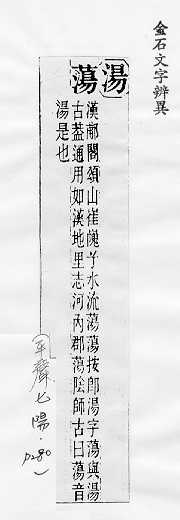 金石文字辨異
湯
蕩
漢郙閣頌山崔嵬兮水流蕩蕩按卽湯字蕩與湯
古葢通用如漢地里志河內郡蕩陰師古曰蕩音
湯是也
平聲七陽．
P280